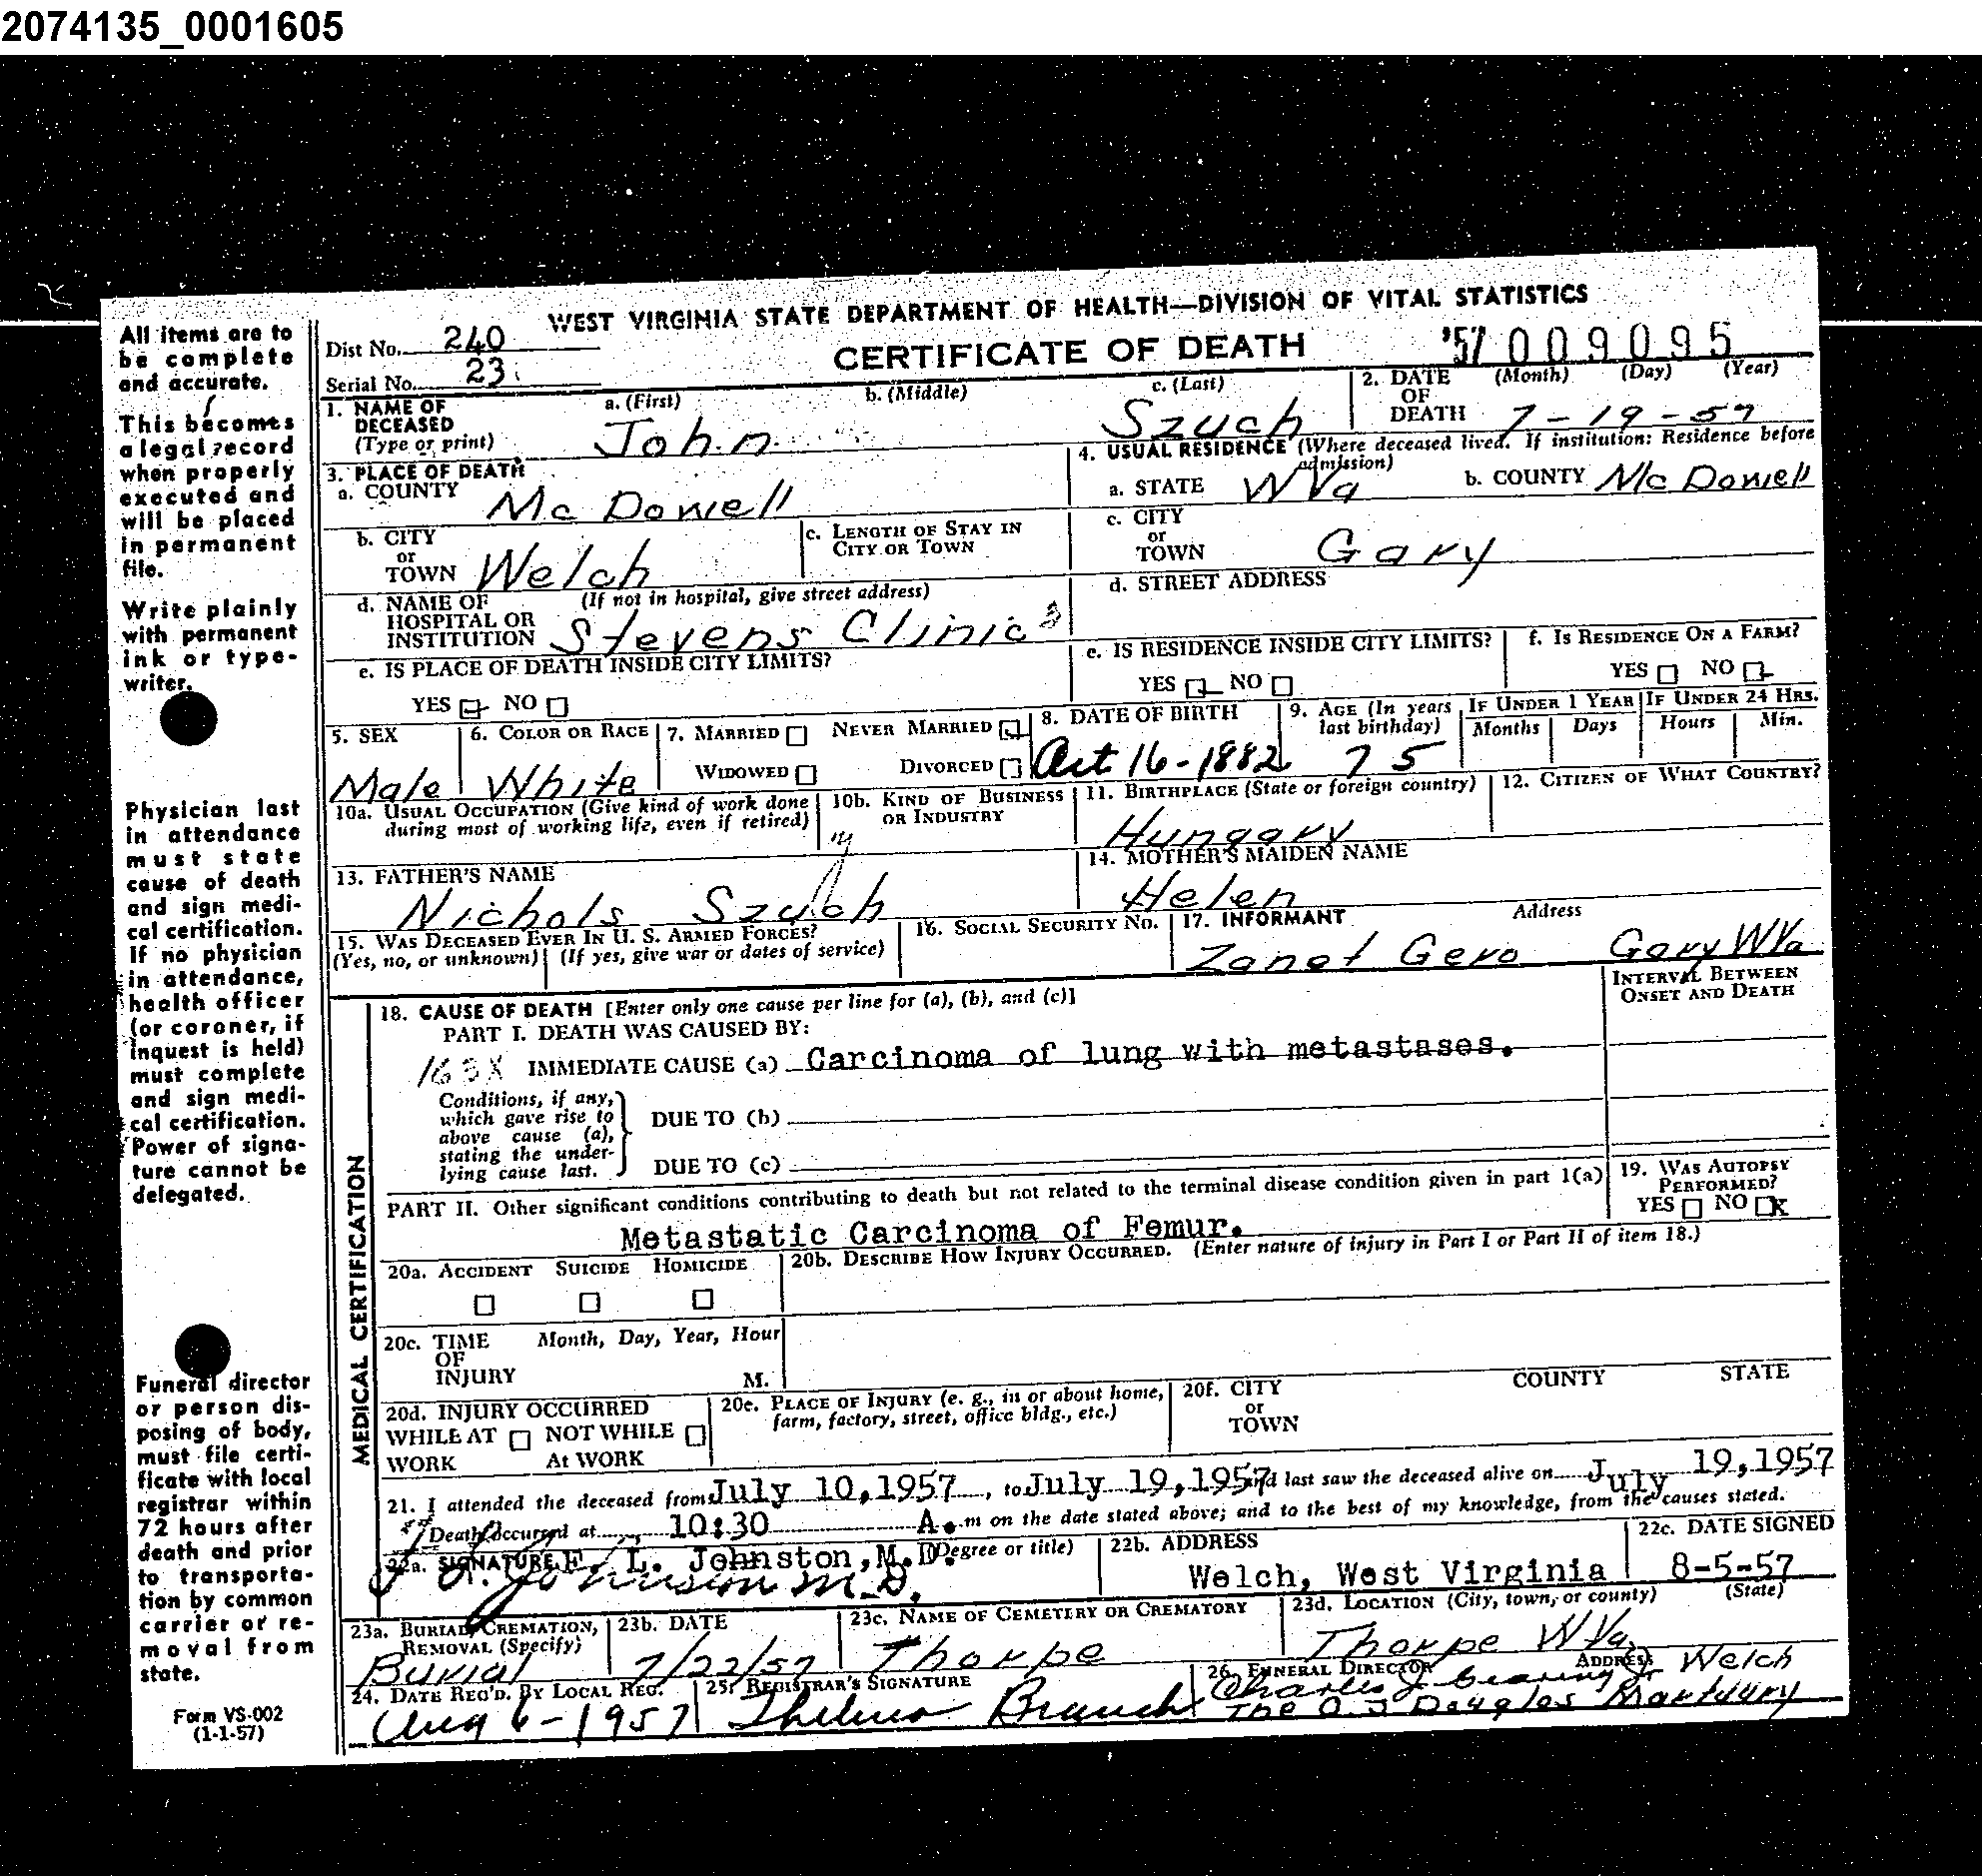 2074135_0001605
WEST VIRGINIA STATE DEPARTMENT OF HEALTH—DIVISION OF VITAL STATISTICS
Dist No. 240
CERTIFICATE OF DEATH
'57 009095
Serial No. 23
1. NAME OF DECEASED (Type or print) a. (First) b. (Middle) c. (Last)
John Szuch
2. DATE OF DEATH (Month) (Day) (Year)
7-19-57
3. PLACE OF DEATH
a. COUNTY McDowell
4. USUAL RESIDENCE (Where deceased lived. If institution: Residence before admission)
a. STATE WVa b. COUNTY McDowell
b. CITY or TOWN Welch
c. LENGTH OF STAY IN CITY OR TOWN
c. CITY or TOWN Gary
d. NAME OF HOSPITAL OR INSTITUTION (If not in hospital, give street address)
Stevens Clinic
d. STREET ADDRESS
e. IS PLACE OF DEATH INSIDE CITY LIMITS?
YES NO
e. IS RESIDENCE INSIDE CITY LIMITS?
YES NO
f. IS RESIDENCE ON A FARM?
YES NO
5. SEX
Male
6. COLOR OR RACE
White
7. MARRIED NEVER MARRIED
WIDOWED DIVORCED
8. DATE OF BIRTH
Oct 16-1882
9. AGE (In years last birthday)
75
IF UNDER 1 YEAR
Months Days
IF UNDER 24 HRS.
Hours Min.
10a. USUAL OCCUPATION (Give kind of work done during most of working life, even if retired)
10b. KIND OF BUSINESS OR INDUSTRY
11. BIRTHPLACE (State or foreign country)
Hungary
12. CITIZEN OF WHAT COUNTRY?
13. FATHER'S NAME
Nichols Szuch
14. MOTHER'S MAIDEN NAME
Helen
15. WAS DECEASED EVER IN U. S. ARMED FORCES?
(Yes, no, or unknown) (If yes, give war or dates of service)
16. SOCIAL SECURITY NO.
17. INFORMANT Address
Zanet Gero Gary WVa
MEDICAL CERTIFICATION
18. CAUSE OF DEATH [Enter only one cause per line for (a), (b), and (c)]
INTERVAL BETWEEN ONSET AND DEATH
PART I. DEATH WAS CAUSED BY:
163X IMMEDIATE CAUSE (a) Carcinoma of lung with metastases.
Conditions, if any, which gave rise to above cause (a), stating the underlying cause last.
DUE TO (b)
DUE TO (c)
PART II. Other significant conditions contributing to death but not related to the terminal disease condition given in part 1(a)
Metastatic Carcinoma of Femur.
19. WAS AUTOPSY PERFORMED?
YES NO X
20a. ACCIDENT SUICIDE HOMICIDE
20b. DESCRIBE HOW INJURY OCCURRED. (Enter nature of injury in Part I or Part II of item 18.)
20c. TIME OF INJURY Month, Day, Year, Hour
M.
20d. INJURY OCCURRED
WHILE AT WORK NOT WHILE At WORK
20e. PLACE OF INJURY (e. g., in or about home, farm, factory, street, office bldg., etc.)
20f. CITY or TOWN COUNTY STATE
21. I attended the deceased from July 10,1957, to July 19,1957 and last saw the deceased alive on July 19,1957
Death occurred at 10:30 A.m on the date stated above; and to the best of my knowledge, from the causes stated.
22a. SIGNATURE (Degree or title)
F. L. Johnston, M.D.
F L Johnston M.D.
22b. ADDRESS
Welch, West Virginia
22c. DATE SIGNED
8-5-57
23a. BURIAL, CREMATION, REMOVAL (Specify)
Burial
23b. DATE
7/22/57
23c. NAME OF CEMETERY OR CREMATORY
Thorpe
23d. LOCATION (City, town, or county) (State)
Thorpe WVa
24. DATE REC'D. BY LOCAL REG.
Aug 6-1957
25. REGISTRAR'S SIGNATURE
Thelma Branch
26. FUNERAL DIRECTOR ADDRESS
Charles J Welch
The O. J Douglas Mortuary
All items are to
be complete
and accurate.
This becomes
a legal record
when properly
executed and
will be placed
in permanent
file.
Write plainly
with permanent
ink or type-
writer.
Physician last
in attendance
must state
cause of death
and sign medi-
cal certification.
If no physician
in attendance,
health officer
(or coroner, if
inquest is held)
must complete
and sign medi-
cal certification.
Power of signa-
ture cannot be
delegated.
Funeral director
or person dis-
posing of body,
must file certi-
ficate with local
registrar within
72 hours after
death and prior
to transporta-
tion by common
carrier or re-
moval from
state.
Form VS-002
(1-1-57)